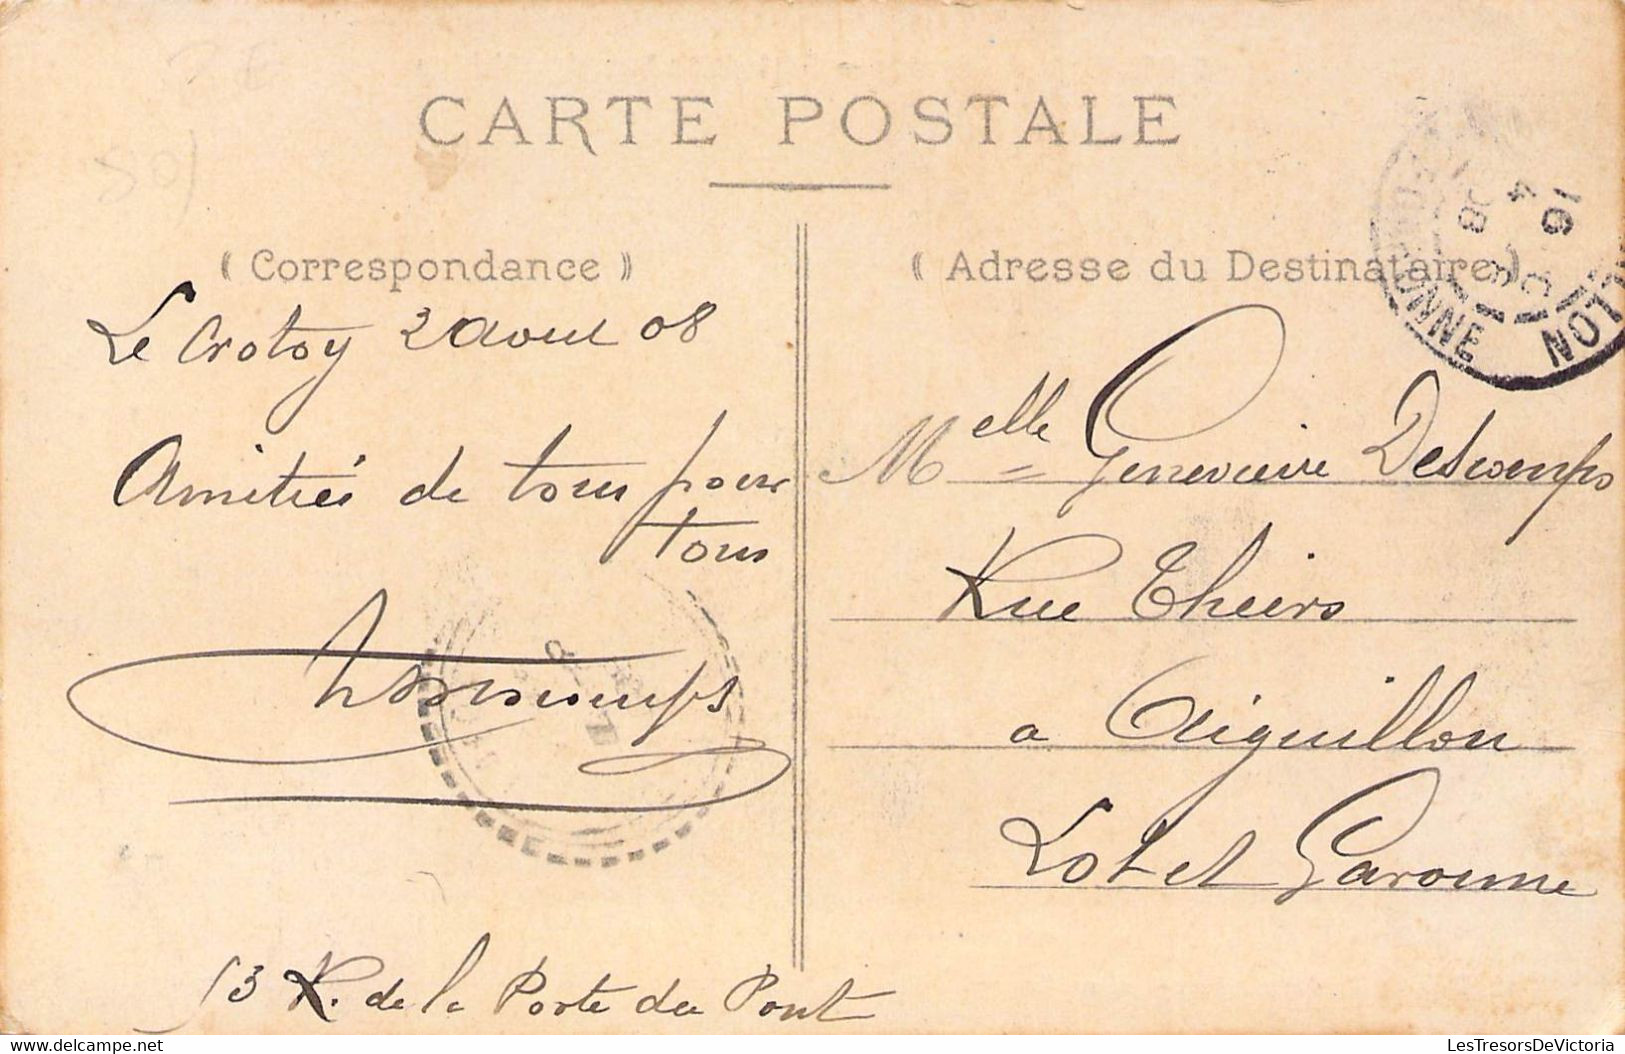 CARTE POSTALE
( Correspondance )
Le Crotoy 2 Aout 08
Amitiés de tous pour
tous
13 R. de la Porte du Pont
( Adresse du Destinataire )
Melle Genevieve Descamps
Rue Theirs
a Aiguillon
Lot et Garonne
16
4
08
ONNE
LLON
delcampe.net
LesTresorsDeVictoria